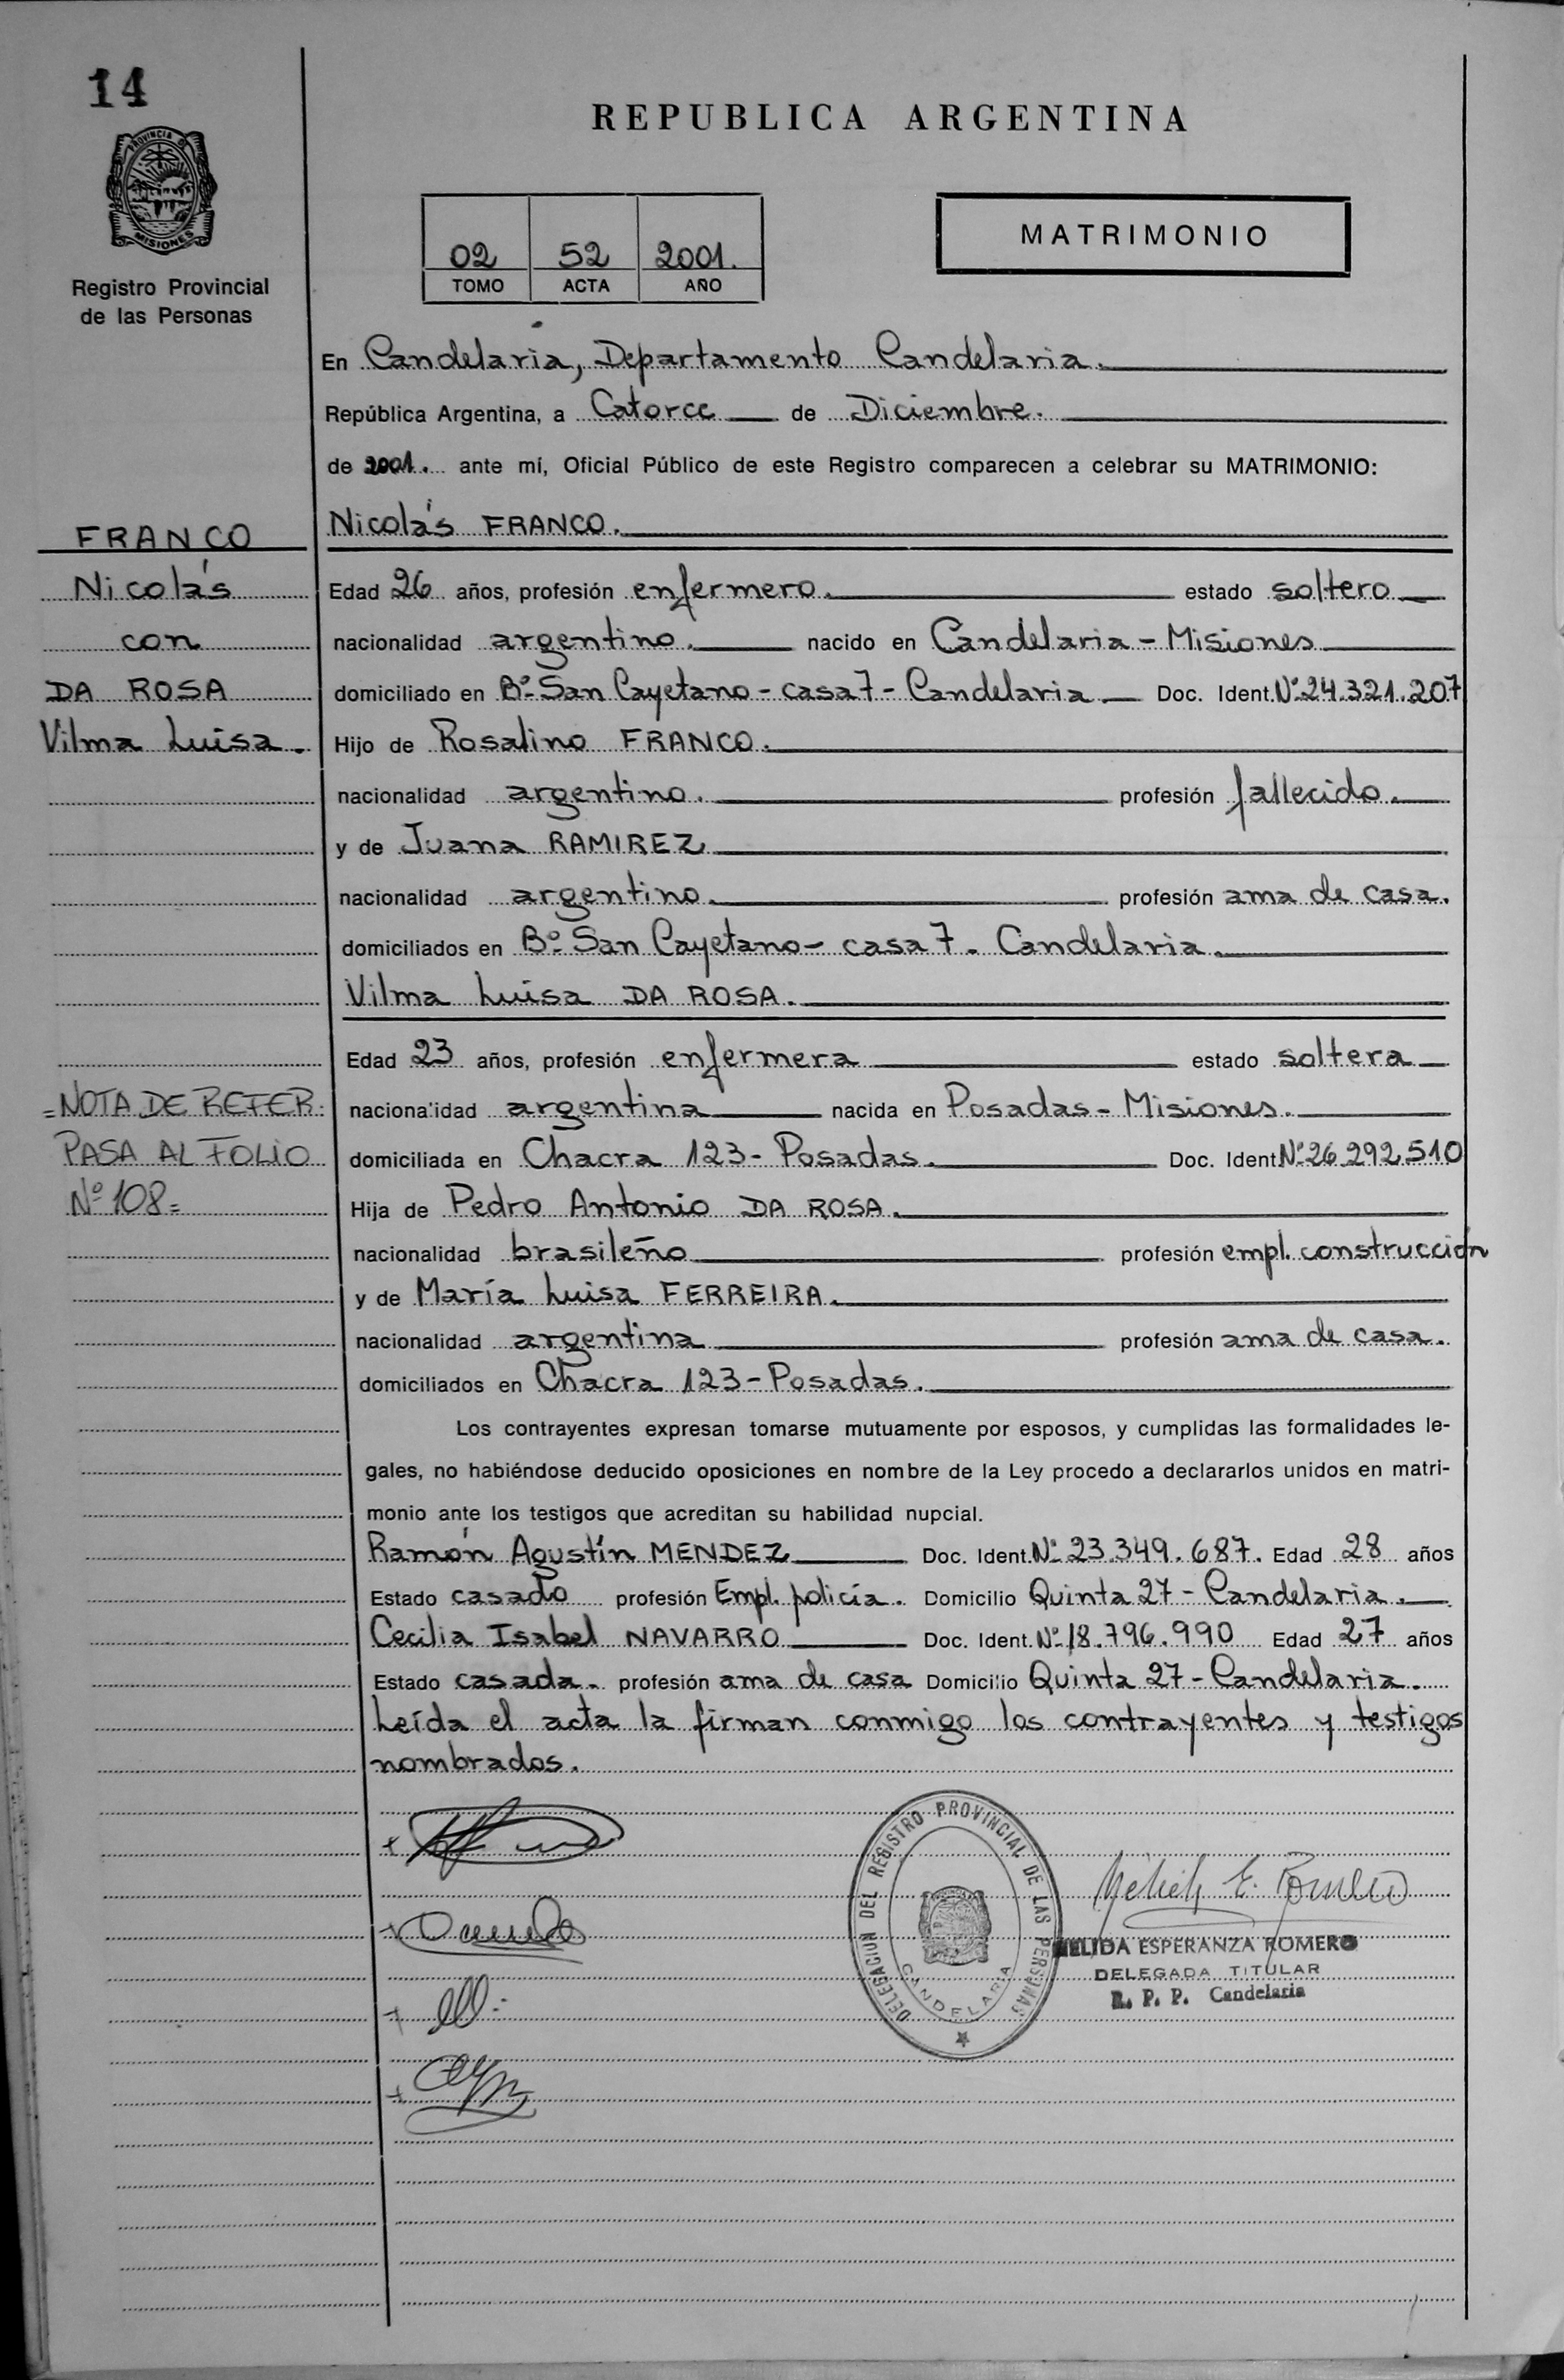 14
REPUBLICA ARGENTINA
PROVINCIA DE
MISIONES
Registro Provincial
de las Personas
02 52 2001.
TOMO ACTA AÑO
MATRIMONIO
En Candelaria, Departamento Candelaria.
República Argentina, a Catorce de Diciembre.
de 2001. ante mí, Oficial Público de este Registro comparecen a celebrar su MATRIMONIO:
FRANCO
Nicolás
con
DA ROSA
Vilma Luisa.
Nicolás FRANCO.
Edad 26 años, profesión enfermero. estado soltero
nacionalidad argentino. nacido en Candelaria - Misiones
domiciliado en Bº San Cayetano - casa 7 - Candelaria Doc. Ident. Nº 24.321.207
Hijo de Rosalino FRANCO.
nacionalidad argentino. profesión fallecido.
y de Juana RAMIREZ
nacionalidad argentino. profesión ama de casa.
domiciliados en Bº San Cayetano - casa 7. Candelaria.
Vilma Luisa DA ROSA.
Edad 23 años, profesión enfermera estado soltera
=NOTA DE REFER:
PASA AL FOLIO
Nº 108=
nacionalidad argentina nacida en Posadas - Misiones.
domiciliada en Chacra 123 - Posadas. Doc. Ident. Nº 26.292.510
Hija de Pedro Antonio DA ROSA.
nacionalidad brasileño profesión empl. construcción
y de María Luisa FERREIRA.
nacionalidad argentina profesión ama de casa.
domiciliados en Chacra 123 - Posadas.
Los contrayentes expresan tomarse mutuamente por esposos, y cumplidas las formalidades le-
gales, no habiéndose deducido oposiciones en nombre de la Ley procedo a declararlos unidos en matri-
monio ante los testigos que acreditan su habilidad nupcial.
Ramón Agustín MENDEZ Doc. Ident. Nº 23.349.687. Edad 28 años
Estado casado profesión Empl. policía. Domicilio Quinta 27 - Candelaria.
Cecilia Isabel NAVARRO Doc. Ident. Nº 18.796.990 Edad 27 años
Estado casada. profesión ama de casa Domicilio Quinta 27 - Candelaria.
Leída el acta la firman conmigo los contrayentes y testigos
nombrados.
DELEGACION DEL REGISTRO PROVINCIAL DE LAS PERSONAS
CANDELARIA
NELIDA ESPERANZA ROMERO
DELEGADA TITULAR
R. P. P. Candelaria